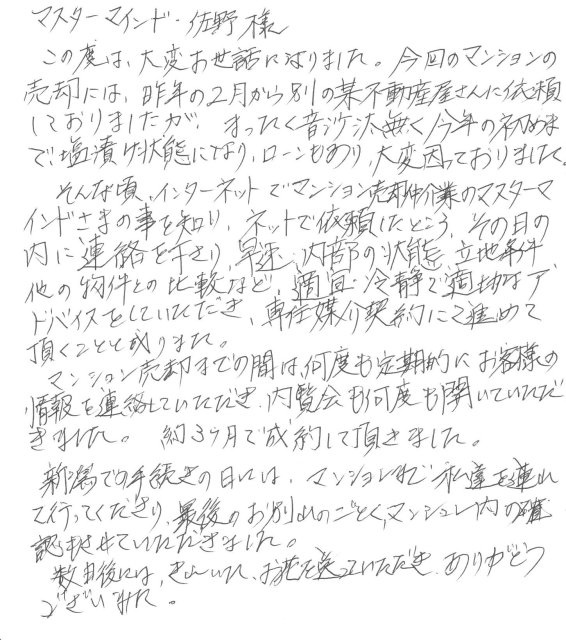 マスターマインド・佐野様
この度は、大変お世話になりました。今回のマンションの
売却には、昨年の2月から別の某不動産屋さんに依頼
しておりましたが、まったく音沙汰無く今年の初めま
で塩漬け状態になり、ローンもあり、大変困っておりました。
そんな頃、インターネットでマンション売却仲介業のマスターマ
インドさまの事を知り、ネットで依頼したところ、その日の
内に連絡を下さり、早速、内部の状態、立地条件
他の物件との比較など、適宜、冷静で適切なア
ドバイスをしていただき、専任媒介契約にて進めて
頂くことと成りました。
マンション売却までの間は、何度も定期的にお客様の
情報を連絡していただき、内覧会も何度も開いていただ
きました。 約3ヶ月で成約して頂きました。
新潟での手続きの日には、マンションまで私達を連れ
て行ってくださり、最後のお別れのごとく、マンション内の確
認もさせていただきました。
数日後には、きれいな、お花を送っていただき、ありがとう
ございました。